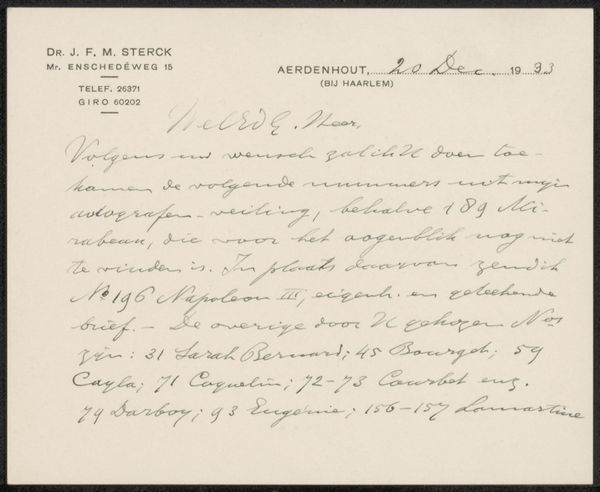 DR. J. F. M. STERCK
Mr. ENSCHEDÉWEG 15
TELEF. 26371
GIRO 60202
AERDENHOUT, 20 Dec. 1933
(BIJ HAARLEM)
WelEdG. Heer,
Volgens uw wensch zal ik U doen toe-
komen de volgende nummers uit mijn
autografen-veiling, behalve 189 Mi-
rabeau, die voor het oogenblik nog niet
te vinden is. In plaats daarvan zend ik
No 196 Napoleon III, eigenh. en geteekende
brief. — De overige door U gekozen Nos
zijn: 31 Sarah Bernard; 45 Bourget; 59
Cayla; 71 Coquelin; 72-73 Courbet enz.
79 Darboy; 93 Eugénie; 156-157 Lamartine